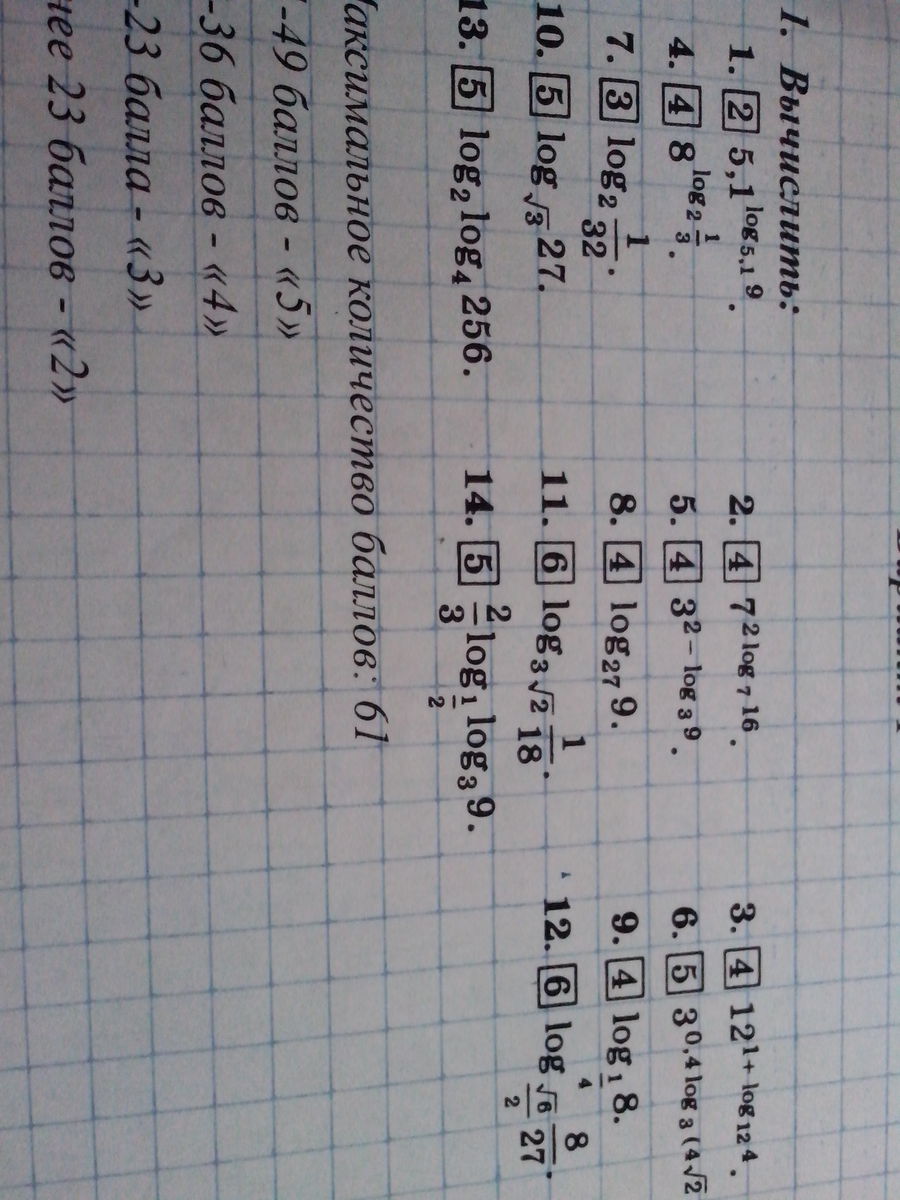 1. Вычислить:
1. 2 5,1^{log_{5,1} 9}. 2. 4 7^{2 log_7 16}. 3. 4 12^{1 + log_{12} 4}.
4. 4 8^{log_2 \frac{1}{3}}. 5. 4 3^{2 – log_3 9}. 6. 5 3^{0,4 log_3 (4√2
7. 3 log_2 \frac{1}{32}. 8. 4 log_{27} 9. 9. 4 log_{\frac{1}{4}} 8.
10. 5 log_{√3} 27. 11. 6 log_{3√2} \frac{1}{18}. 12. 6 log_{\frac{√6}{2}} \frac{8}{27}.
13. 5 log_2 log_4 256. 14. 5 \frac{2}{3} log_{\frac{1}{2}} log_3 9.
аксимальное количество баллов: 61
-49 баллов - «5»
-36 баллов - «4»
-23 балла - «3»
нее 23 баллов - «2»